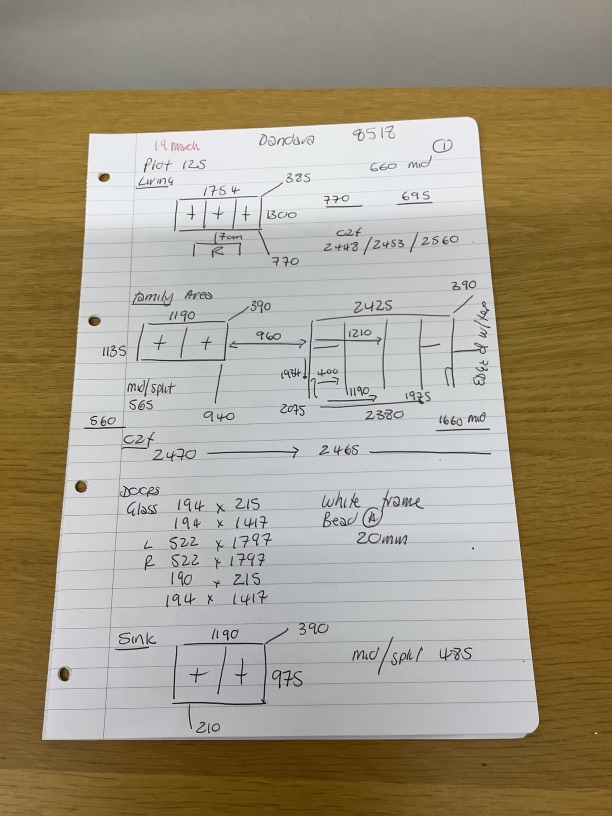 19 March Dandara 8518 1
Plot 125 660 mid
Living
1754 385
770 695
1300
17cm
R
770
c2f
2448/2453/2560
Family Area
1190 390 2425 390
1135 960 1210
1934 400
mid/split
565
1190 1975
560 940 2075 2380 1660 mid
edge of w/top
c2f
2470 2465
DOORS
Glass 194 x 215 White frame
194 x 1417 Bead A
L 522 x 1797 20mm
R 522 x 1797
190 x 215
194 x 1417
Sink 1190 390
mid/split 485
975
210